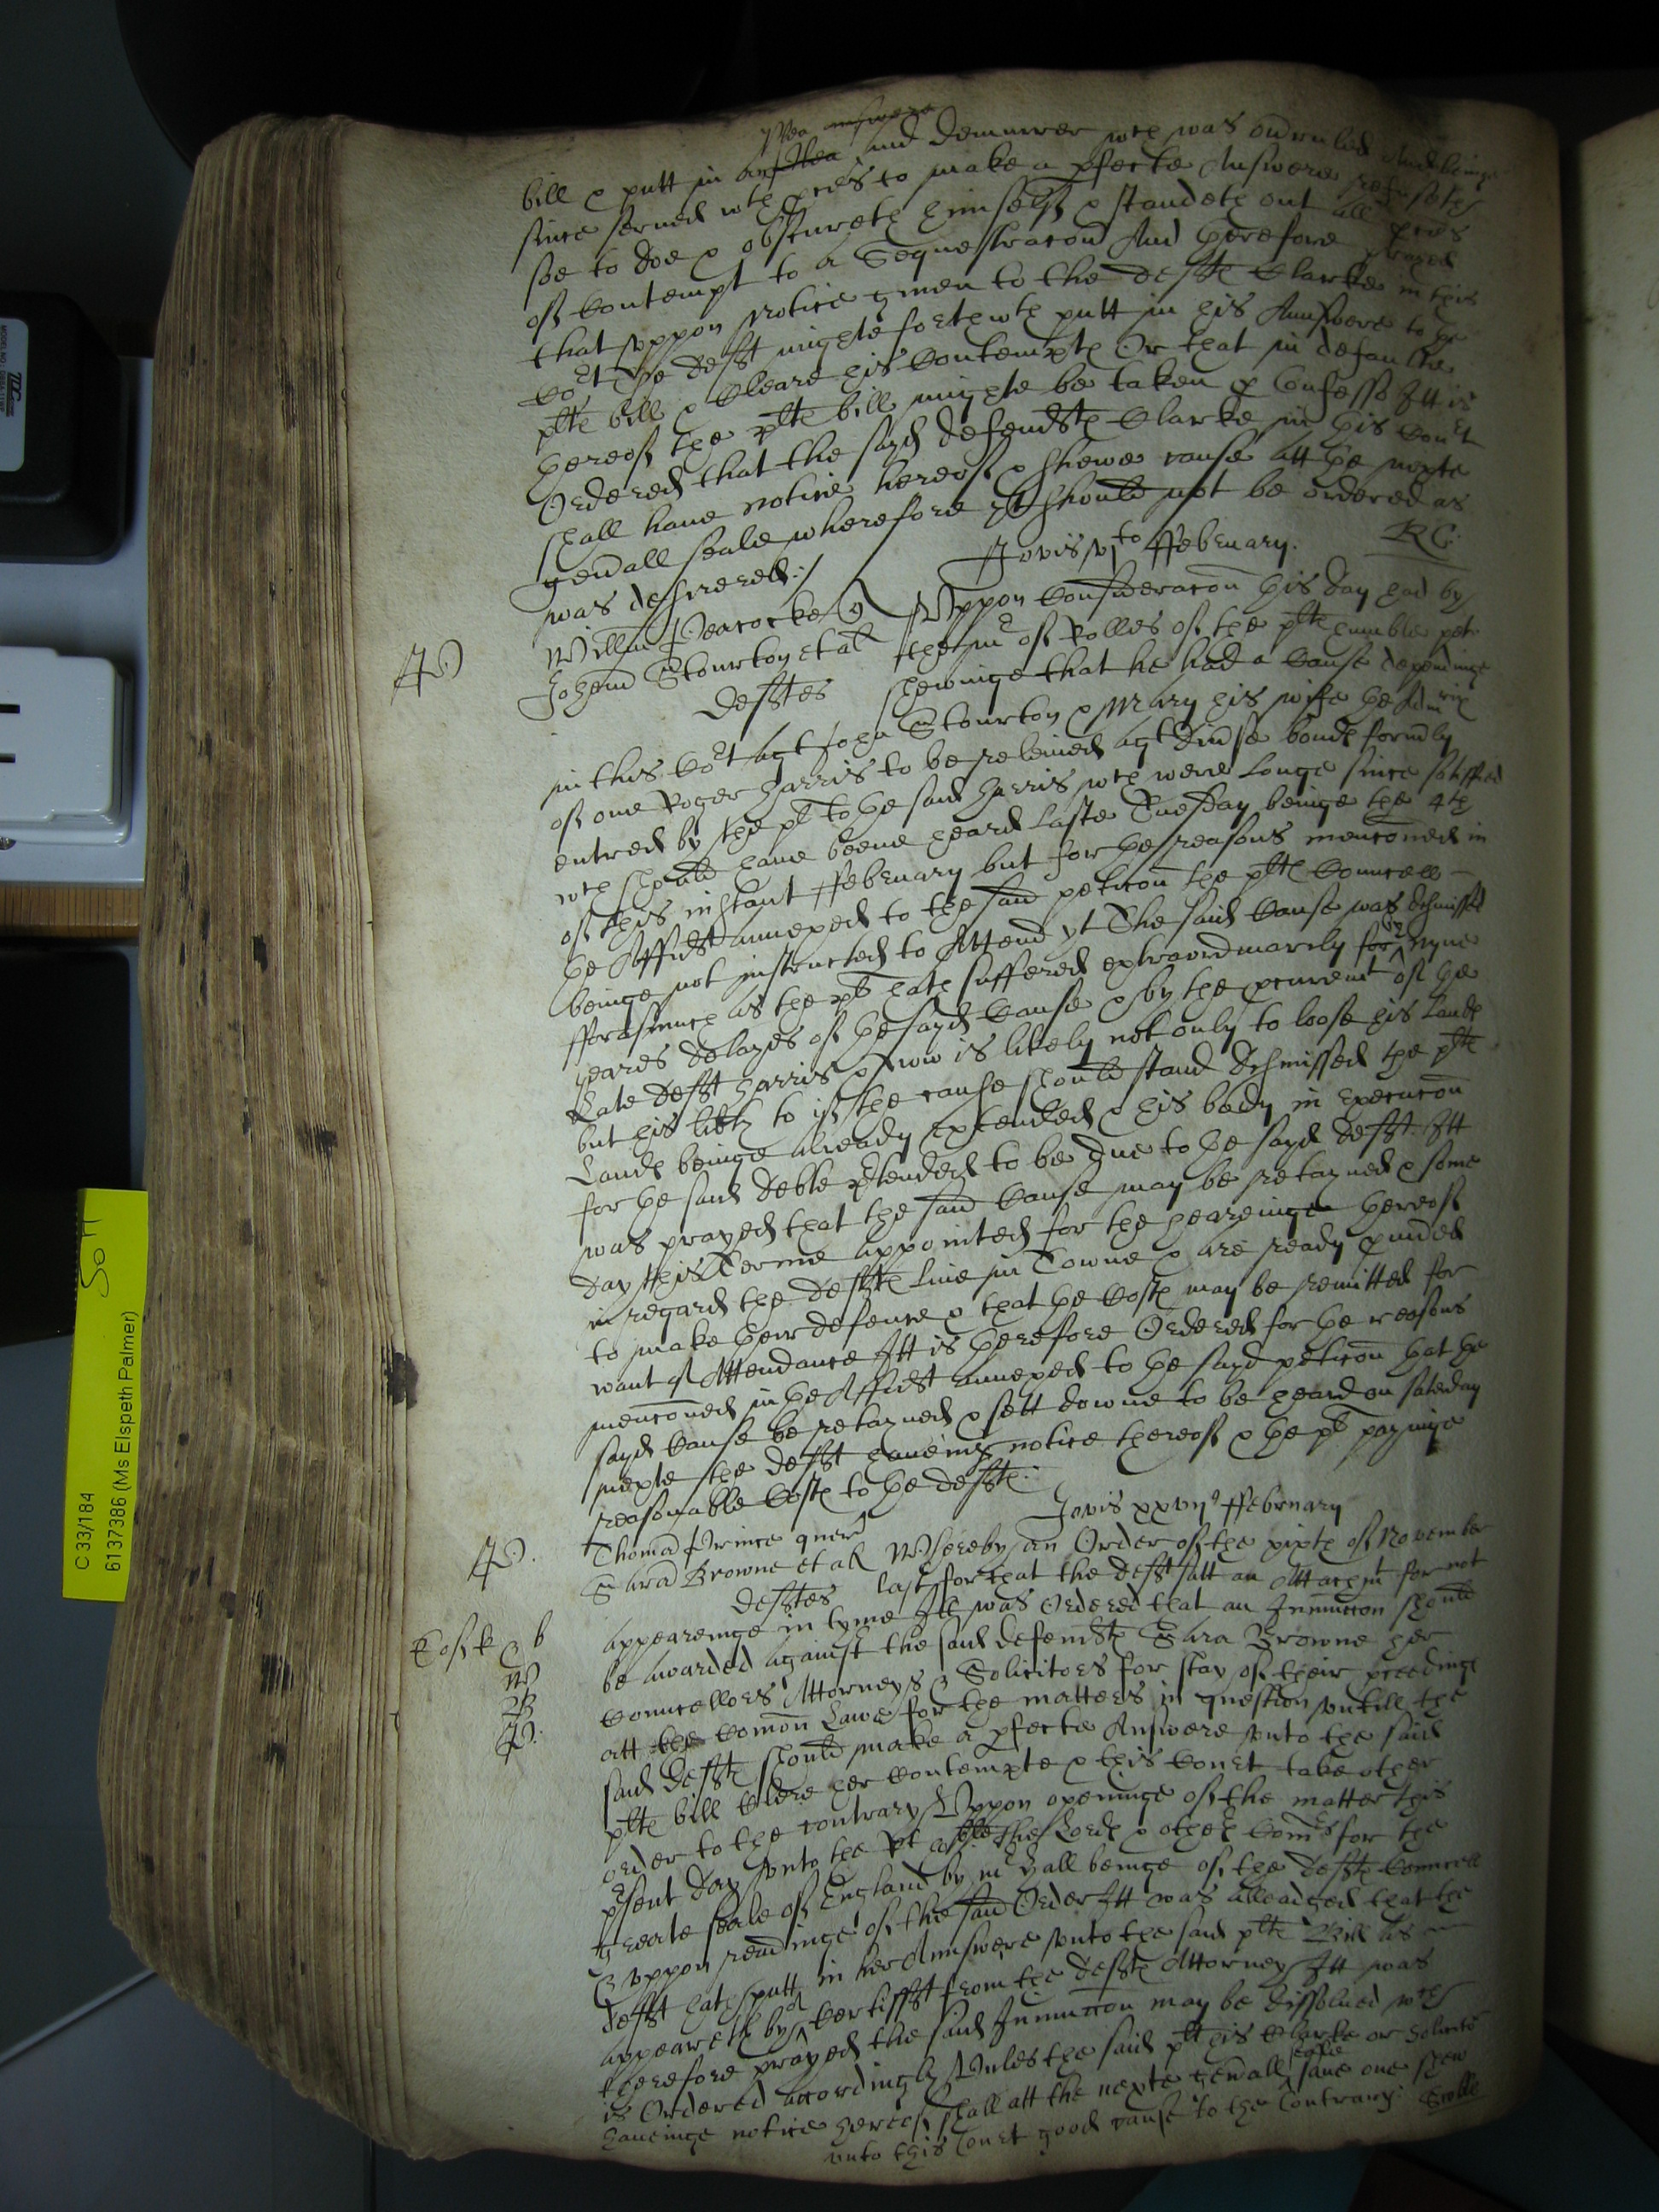 plea answere
bill & putt in an plea and demurrer wch was ou'ruled And beinge
since serued wth pces to make a pfecte Answere refuseth
soe to doe & obscureth himselfe & standeth out all pces
of Contempt to a Sequestracon And therefore prayed
that vppon notice giuen to the defts Clarke in this
Cort the deft mighte forthwth putt in his Answere to the
plts bill & Cleare his Contempte Or that in defaulte
thereof the plts bill mighte be taken p Confesso Itt is
Ordered that the sayd defendts Clarke in this Cort
shall haue notice hereof & shewe cause att the nexte
gen'all seale wherefore yt should not be ordered as
was desired:/
RC:
Jovis vito ffebruary.
Willm Peacocke q
Johem Stourton et al
deftes
Vppon Consideracon this day had by
the mr of Rolles of the plts humble pet
shewinge that he had a Cause dependinge
in this Cort agt John Stourton & Mary his wife the Admrix
of one Roger Harris to be releiued agt diu'se bonds form'ly
entred by the pl to the said Harris wch were longe since satisfied
wch should haue beene heard laste Tuesday beinge the 4th
of this instant ffebruary but for the reasons menconed in
the Affidt annexed to the said peticon the plts Councell
beinge not instructed to Attend yt The said Cause was dismissed
fforasmuch as the pl hath suffered extraordinarily for nyne
yeares delayes of the sayd Cause & by the pcuremt of the
Late deft Harris & now is likely not only to loose his lands
but his lib'ty to if the cause should stand dismissed the plts
Lands beinge already extended & his body in execucon
for the said debte p'tended to be due to the sayd deft Itt
was prayed that the said Cause may be retayned & some
day this Terme appointed for the heareinge thereof
in regard the defts liue in Towne & are ready p'uided
to make their defence & that the Costs may be remitted for
want of Attendance Itt is therefore Ordered for the reasons
menconed in the Affidt annexed to the sayd peticon that the
sayd Cause be retayned & sett downe to be heard on saterday
nexte the deft haueing notice thereof & the pl payinge
reasonable Costs to the defts.
Jovis xxvijo ffebruary
Thomas Prince quer
Sara Browne et al
deftes
Whereby an Order of the sixth of November
last for that the deft satt an Attachmt for not
appeareinge in tyme Itt was Ordered that an Iniunccon should
be awarded against the said defendt Sara Browne her
Councellors Attorneys & Solicitors for stay of their pcedings
att the Comon Lawe for the matters in question vntill the
said defts should make a pfecte Answere vnto the said
plts bill Clere her Contempte & this Court take other
order to the contrary Vppon openinge of the matter this
p'sent day vnto the Rt ho'ble the Lords & other Comrs for the
greate seale of England by mr Hall beinge of the defts Councell
& vppon readinge of the said Order Itt was alleadged that the
deft hath putt in her Answere vnto the said plts Bill as
appeareth by a Certifft from the defts Attorney Itt was
therefore prayed the said Iniunccon may be dissolued wch
is Ordered accordingly Vnles the said plt his Clarke or Solicitor
haueinge notice hereof shall att the nexte gen'all seale saue one shew
vnto this Court good cause to the Contrary.
C 33/184
6137386 (Ms Elspeth Palmer)